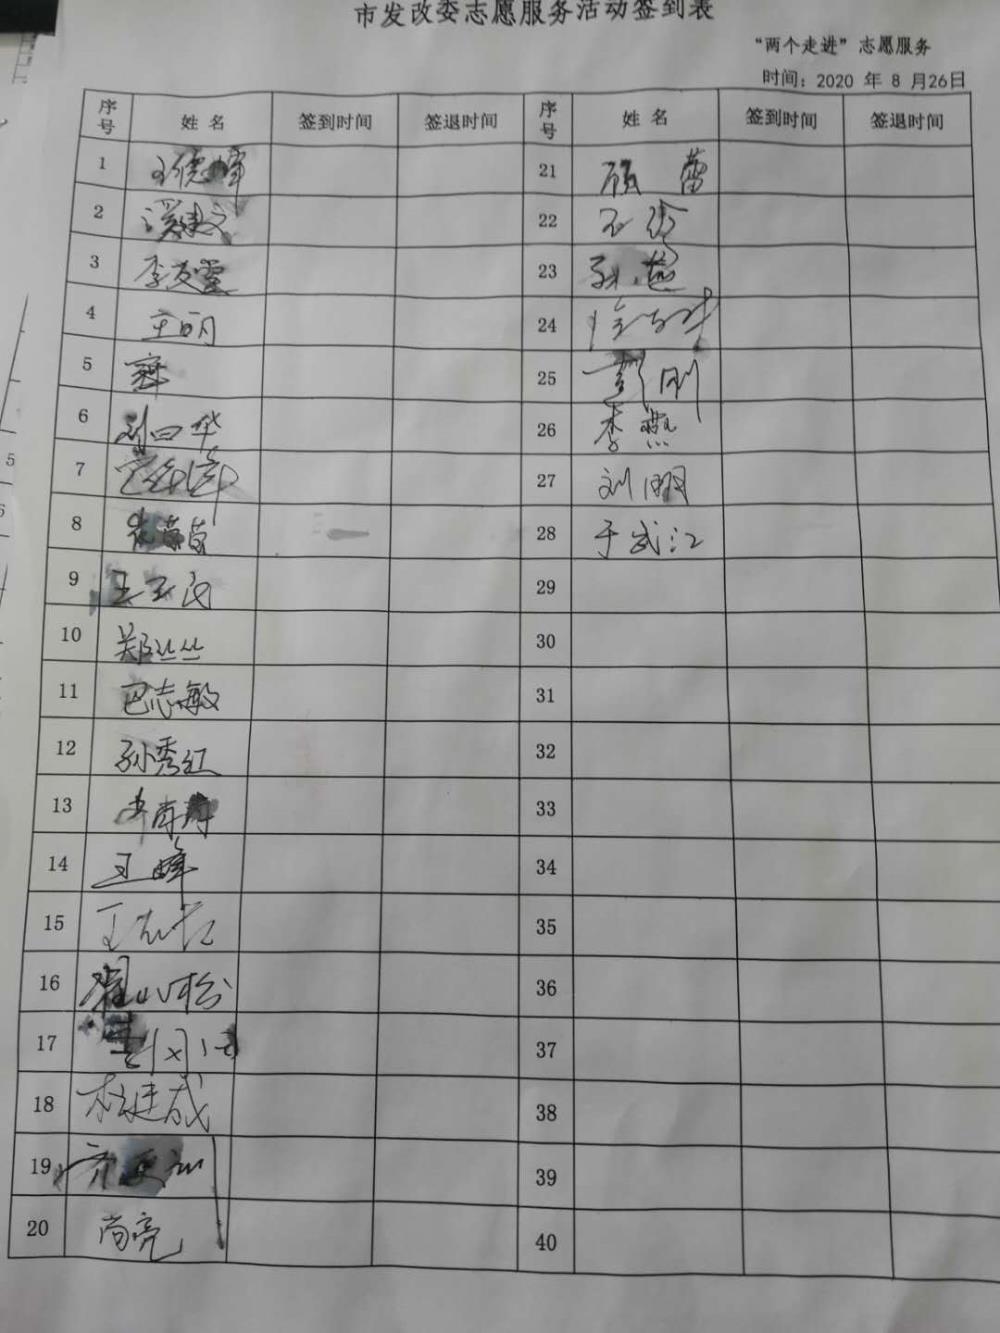 市发改委志愿服务活动签到表
“两个走进”志愿服务
时间：2020 年 8 月26日
序号 姓名 签到时间 签退时间 序号 姓名 签到时间 签退时间
1 王德峰 21 顾蕾
2 22
3 李友霞 23 孙超
4 王明 24
5 25 彭刚
6 刘四华 26 李燕
7 27 刘朋
8 28 于武江
9 王玉民 29
10 郑丛丛 30
11 巴志敏 31
12 孙秀红 32
13 33
14 王峰 34
15 35
16 翟小松 36
17 37
18 杜建成 38
19 39
20 尚亮 40